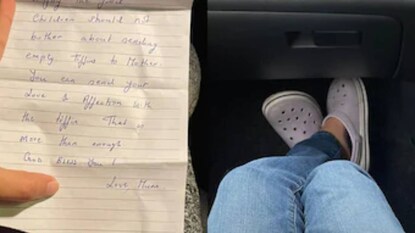 Children should not
bother about sending
empty tiffins to Mother.
You can send your
Love & Affection with
the tiffin That is
more than enough
God Bless You!
Love, Mum